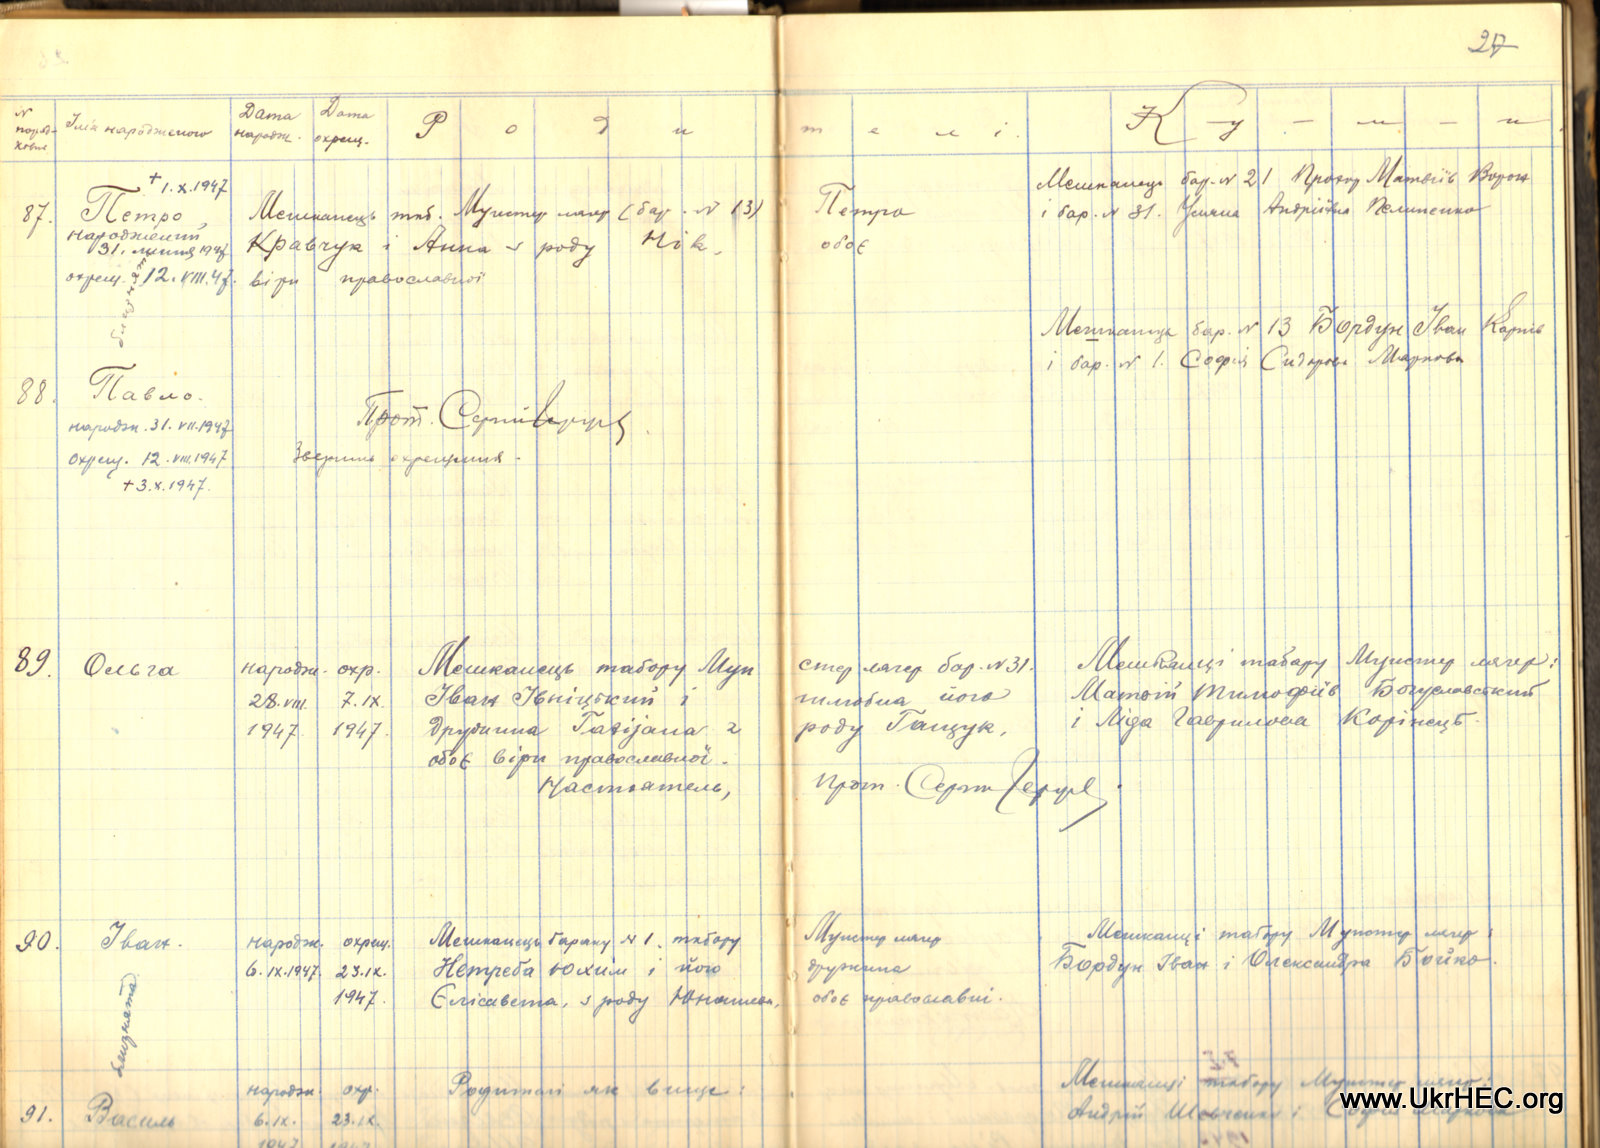 27
N поряд-ковий
Імя народженого
Дата народж.
Дата охрещ.
Р о д и т е л і.
К - у - м - и
+ 1.X.1947
87. Петро Мешканець таб. Мунстер лагер (бар. N 13) Петро
народжений
31. липня 1947 Кравчук і Анна з роду Нік, обоє
охрещ. 12.VIII.47. віри православної
близнята
Мешканець бар. N 21 Прохор Матвіїв Ворон
і бар. N 31. Уляна Андріївна Пелипенко
Мешканець бар. N 13 Бордун Іван Карпів
і бар. N 1. Софія Сидорова Маркова
88. Павло.
народж. 31. VII.1947
охрещ. 12. VIII.1947
+ 3.X.1947.
Прот. Сергій
охрещення.
89. Ольга народж. охр. Мешканець табору Мун стер лагер бар. N 31. Мешканці табору Мунстер лагер:
28.VIII. 7.IX. Іван Івніцький і шлюбна його Матвій Тимофіїв Богуславський
1947. 1947. дружина Татіjана з роду Гащук, і Ліда Гаврилова Корінець.
обоє віри православної.
Настоятель, прот. Сергій
90. Іван. народж. охрещ. Мешканець бараку N 1. табору Мунстер лагер Мешканці табору Мунстер лагер:
6.IX.1947. 23.IX. Нетреба Юхим і його дружина Бордун Іван і Олександра Бойко.
1947. Єлісавета, з роду обоє православні.
близнята
91. Василь народж. охр. Родителі як вище: Мешканці табору Мунстер лагер:
6.IX. 23.IX. Андрій Шевченко і Софія Маркова
1947 1947
www.UkrHEC.org